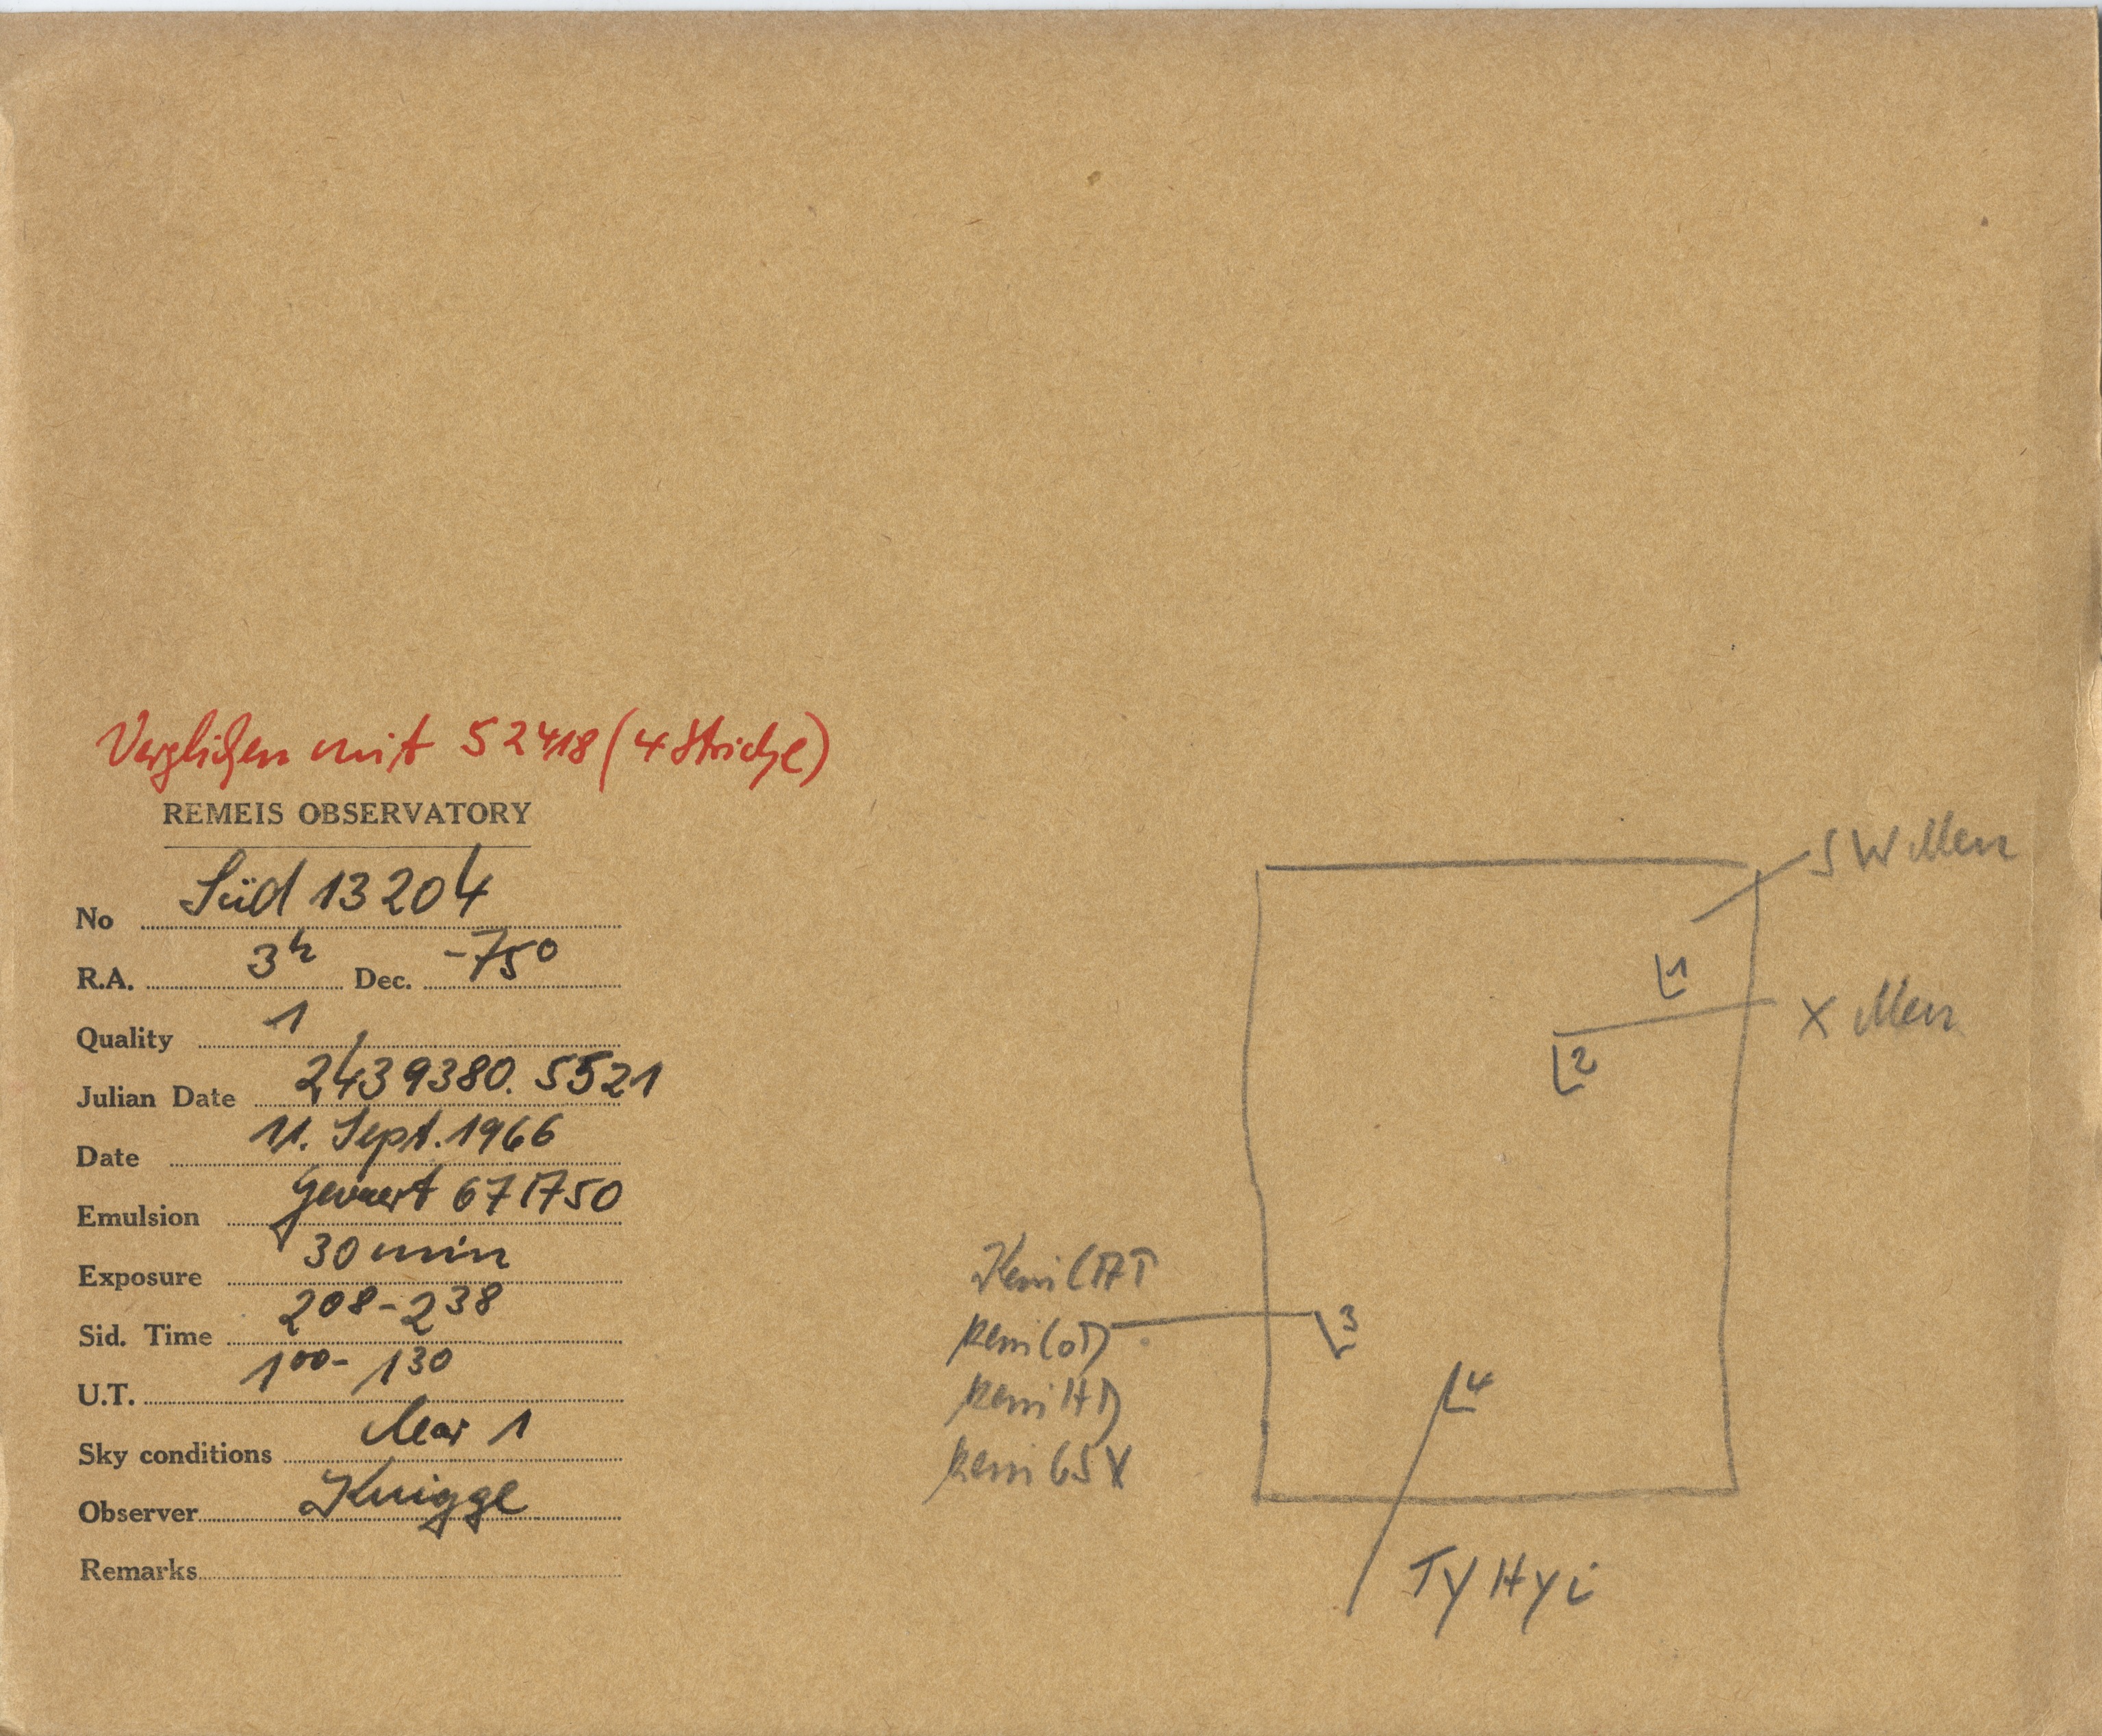 Verglichen mit S 2418 (4 Striche)
REMEIS OBSERVATORY
No Süd 13204
R.A. 3h Dec. -75°
Quality 1
Julian Date 2439380.5521
Date 11. Sept. 1966
Emulsion Gevaert 67 1750
Exposure 30 min
Sid. Time 2 08 - 2 38
U.T. 1 00 - 1 30
Sky conditions clear 1
Observer Knigge
Remarks
SW Men
1
X Men
2
3
4
TY Hyi